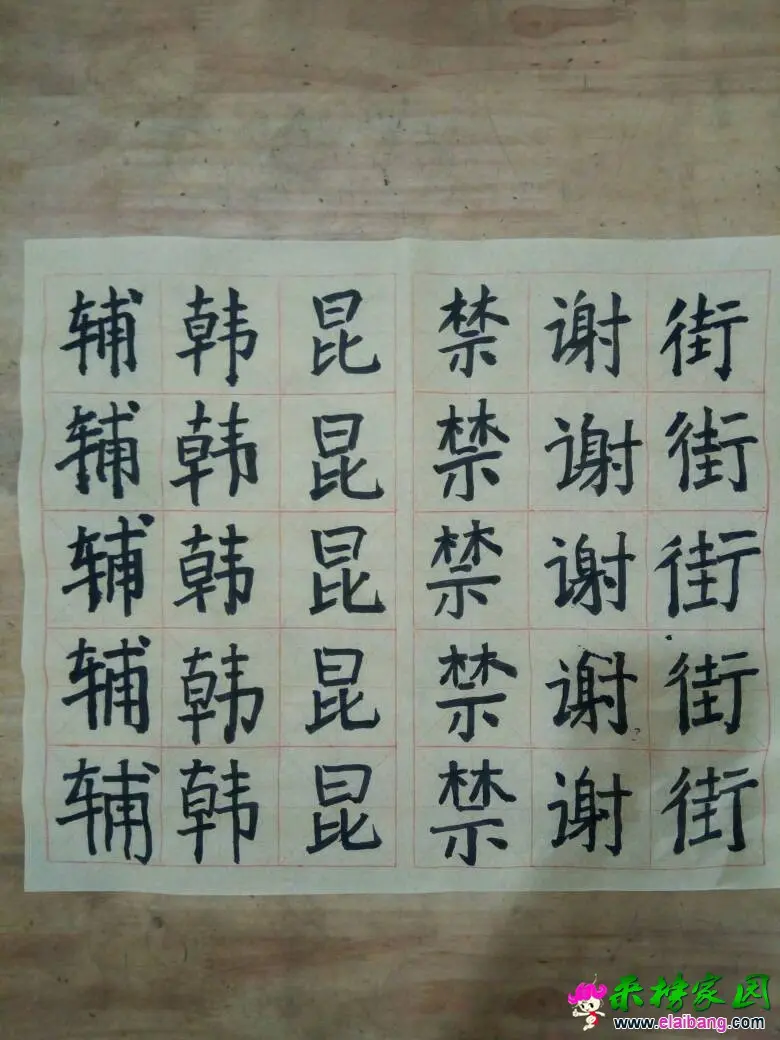 辅韩昆禁谢街
辅韩昆禁谢街
辅韩昆禁谢街
辅韩昆禁谢街
辅韩昆禁谢街
采榜家园
www.elaibang.com